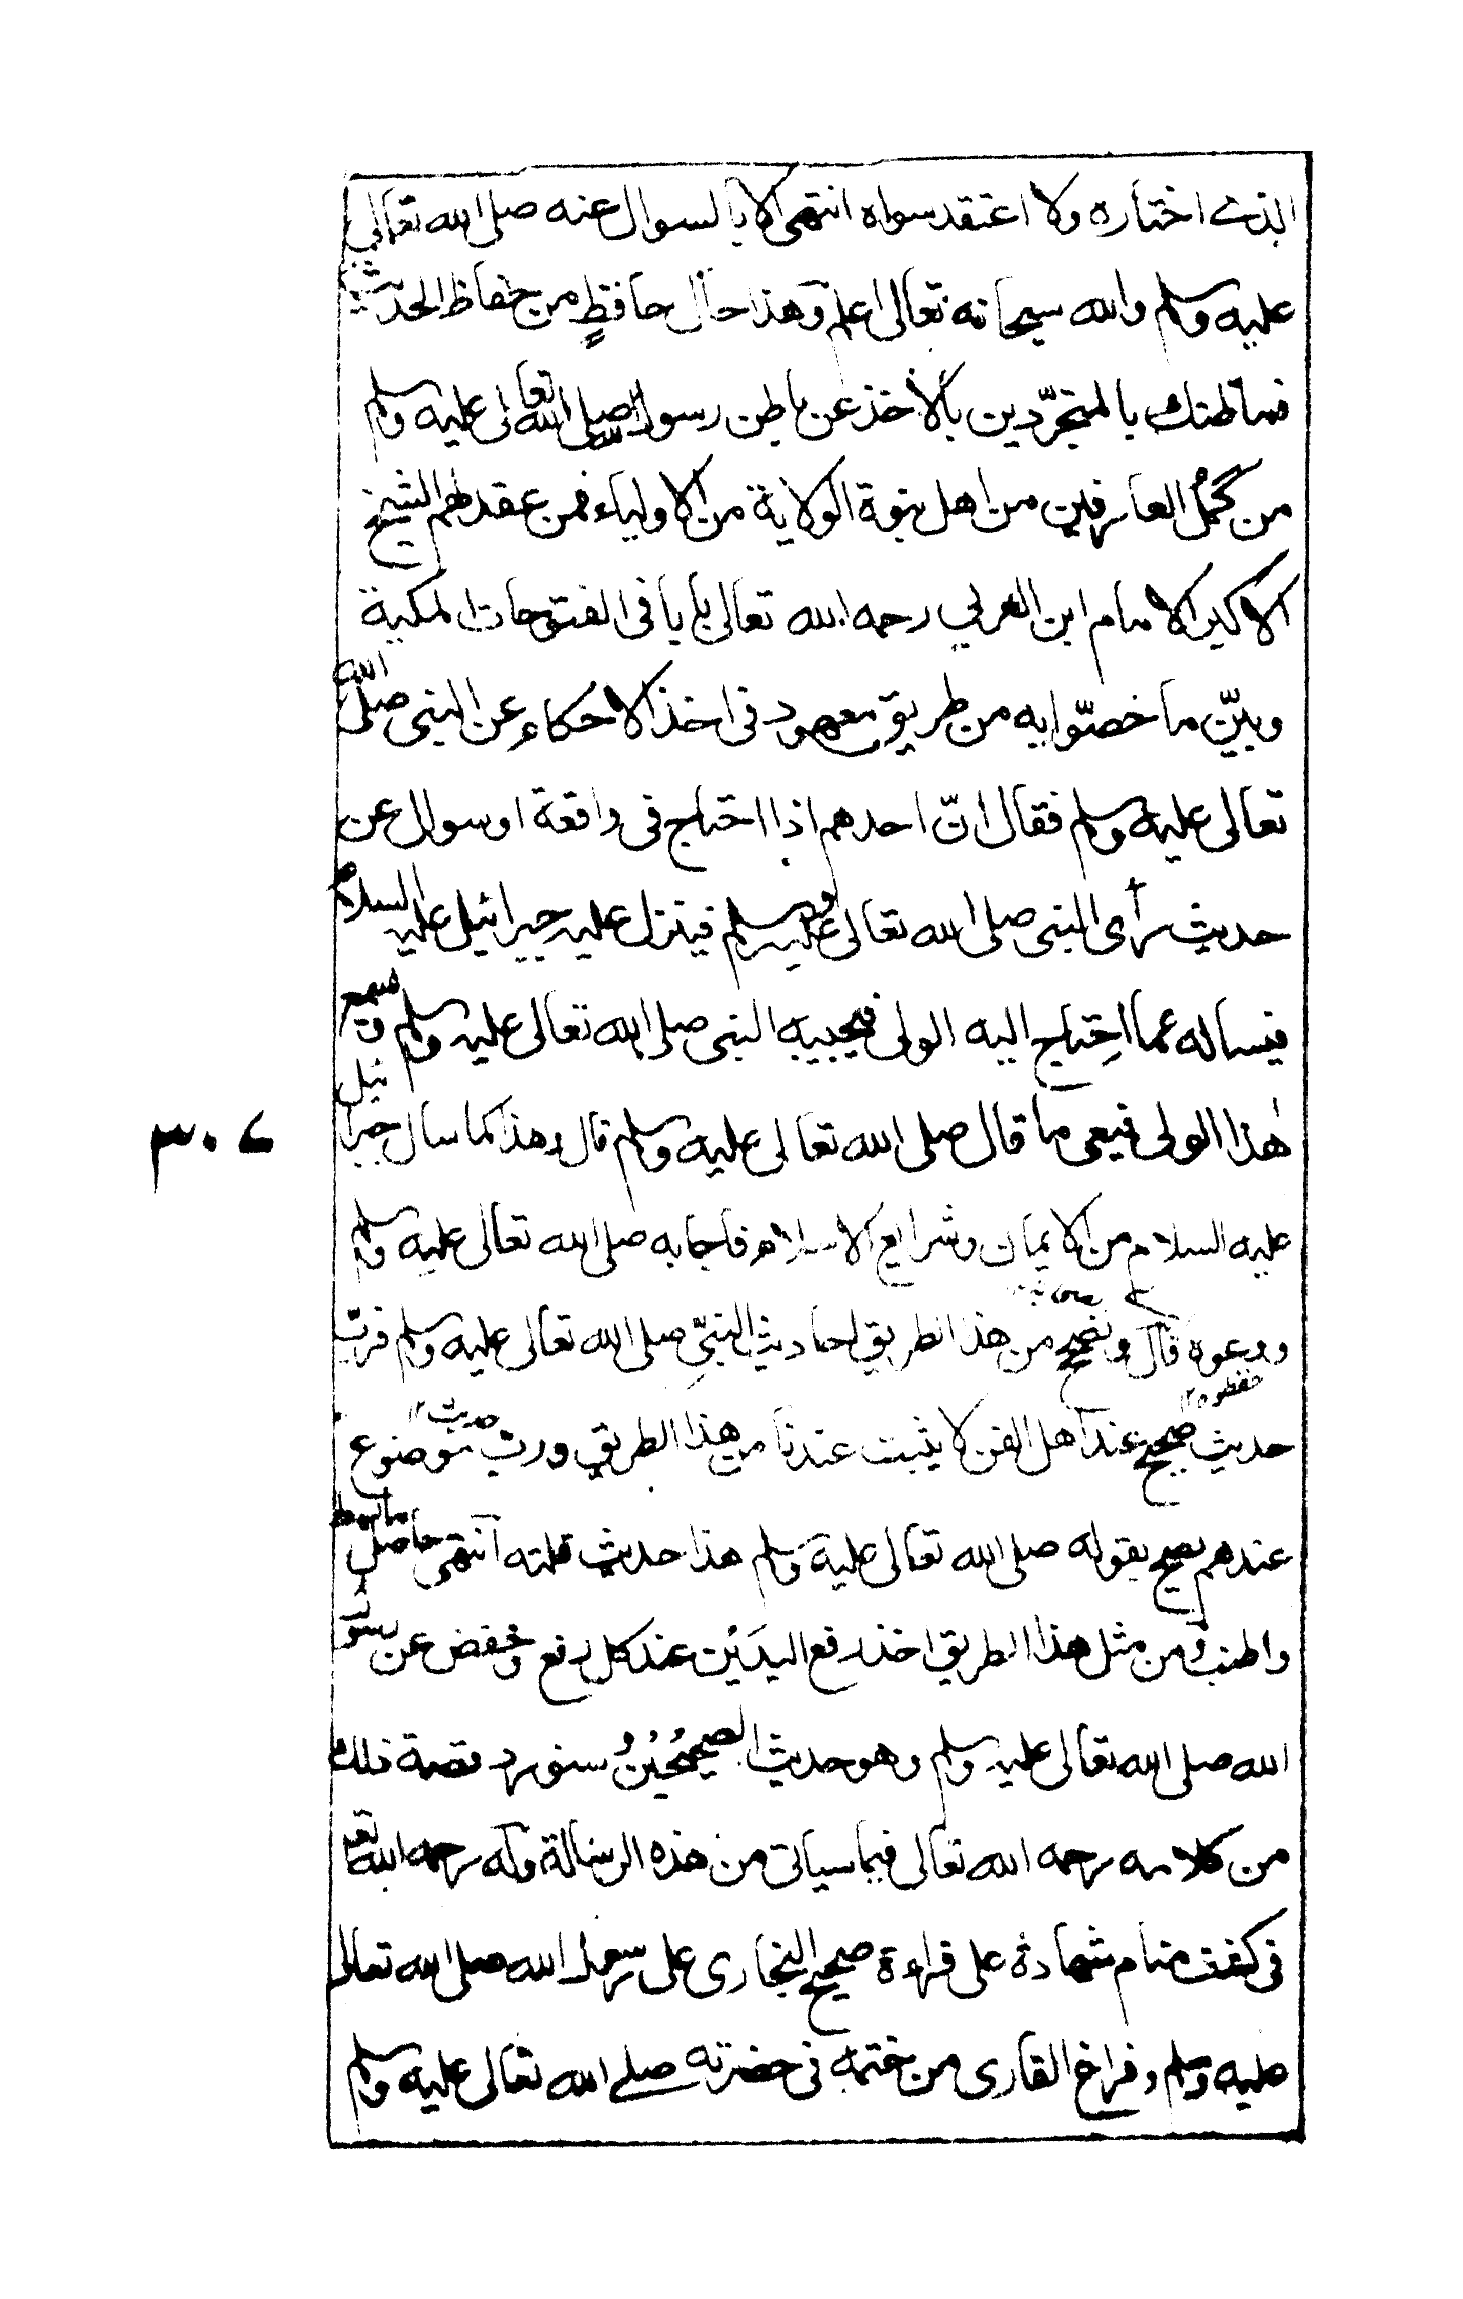 الذي اختاره ولا اعتقد سواه انتهى الا بالسوال عنه صلى الله تعالى
عليه وسلم والله سبحانه تعالى اعلم وهذا حال حافظٍ من حفاظ الحديث
فما ظنك بالمتجرّدين بالأخذ عن باطن رسول الله صلى الله تعالى عليه وسلم
من كُمّل العارفين من اهل نبوة الولاية من الاولياء فمن عقد لهم الشيخ
الاكبر الامام ابن العربي رحمه الله تعالى بابا في الفتوحات المكية
وبيّن ما خصّوا به من طريق معهود في اخذ الاحكام عن النبي صلّى الله
تعالى عليه وسلم فقال انّ احدهم اذا احتاج في واقعة او سوال عن
حديث رأى النبي صلى الله تعالى عليه وسلم فينزل عليه جبرائيل عليه السلام
فيساله عما احتاج اليه الولي فيجيبه النبي صلى الله تعالى عليه وسلم ويسمع
هٰذا الولي فيعي ما قال صلى الله تعالى عليه وسلم قال وهذا كما سال جبرائيل
عليه السلام من الايمان وشرايع الاسلام فاجابه صلى الله تعالى عليه وسلم
ووعوه قال ونصحح من هذا الطريق احاديث النبيّ صلى الله تعالى عليه وسلم فربّ
حفظوه ١٢
حديث صحيح عند اهل الفن لا يثبت عندنا من هذا الطريق وربّ حديث ١٢ موضوع
عندهم يصح بقوله صلى الله تعالى عليه وسلم هذا حديث قلته انتهى حاصل ما بسط
واطنب ومن مثل هذا الطريق اخذ رفع اليدَيْن عند كل رفع وخفض عن رسول
الله صلى الله تعالى عليه وسلم وهو حديث الصحيحَيْن وسنورد قصة ذلك
من كلامه رحمه الله تعالى فيما سياتي من هذه الرسالة وله رحمه الله تعالى
في كيفية منام شهادة على قراءة صحيح البخاري على رسول الله صلى الله تعالى
عليه وسلم وفراغ القاري من ختمه في حضرته صلى الله تعالى عليه وسلم